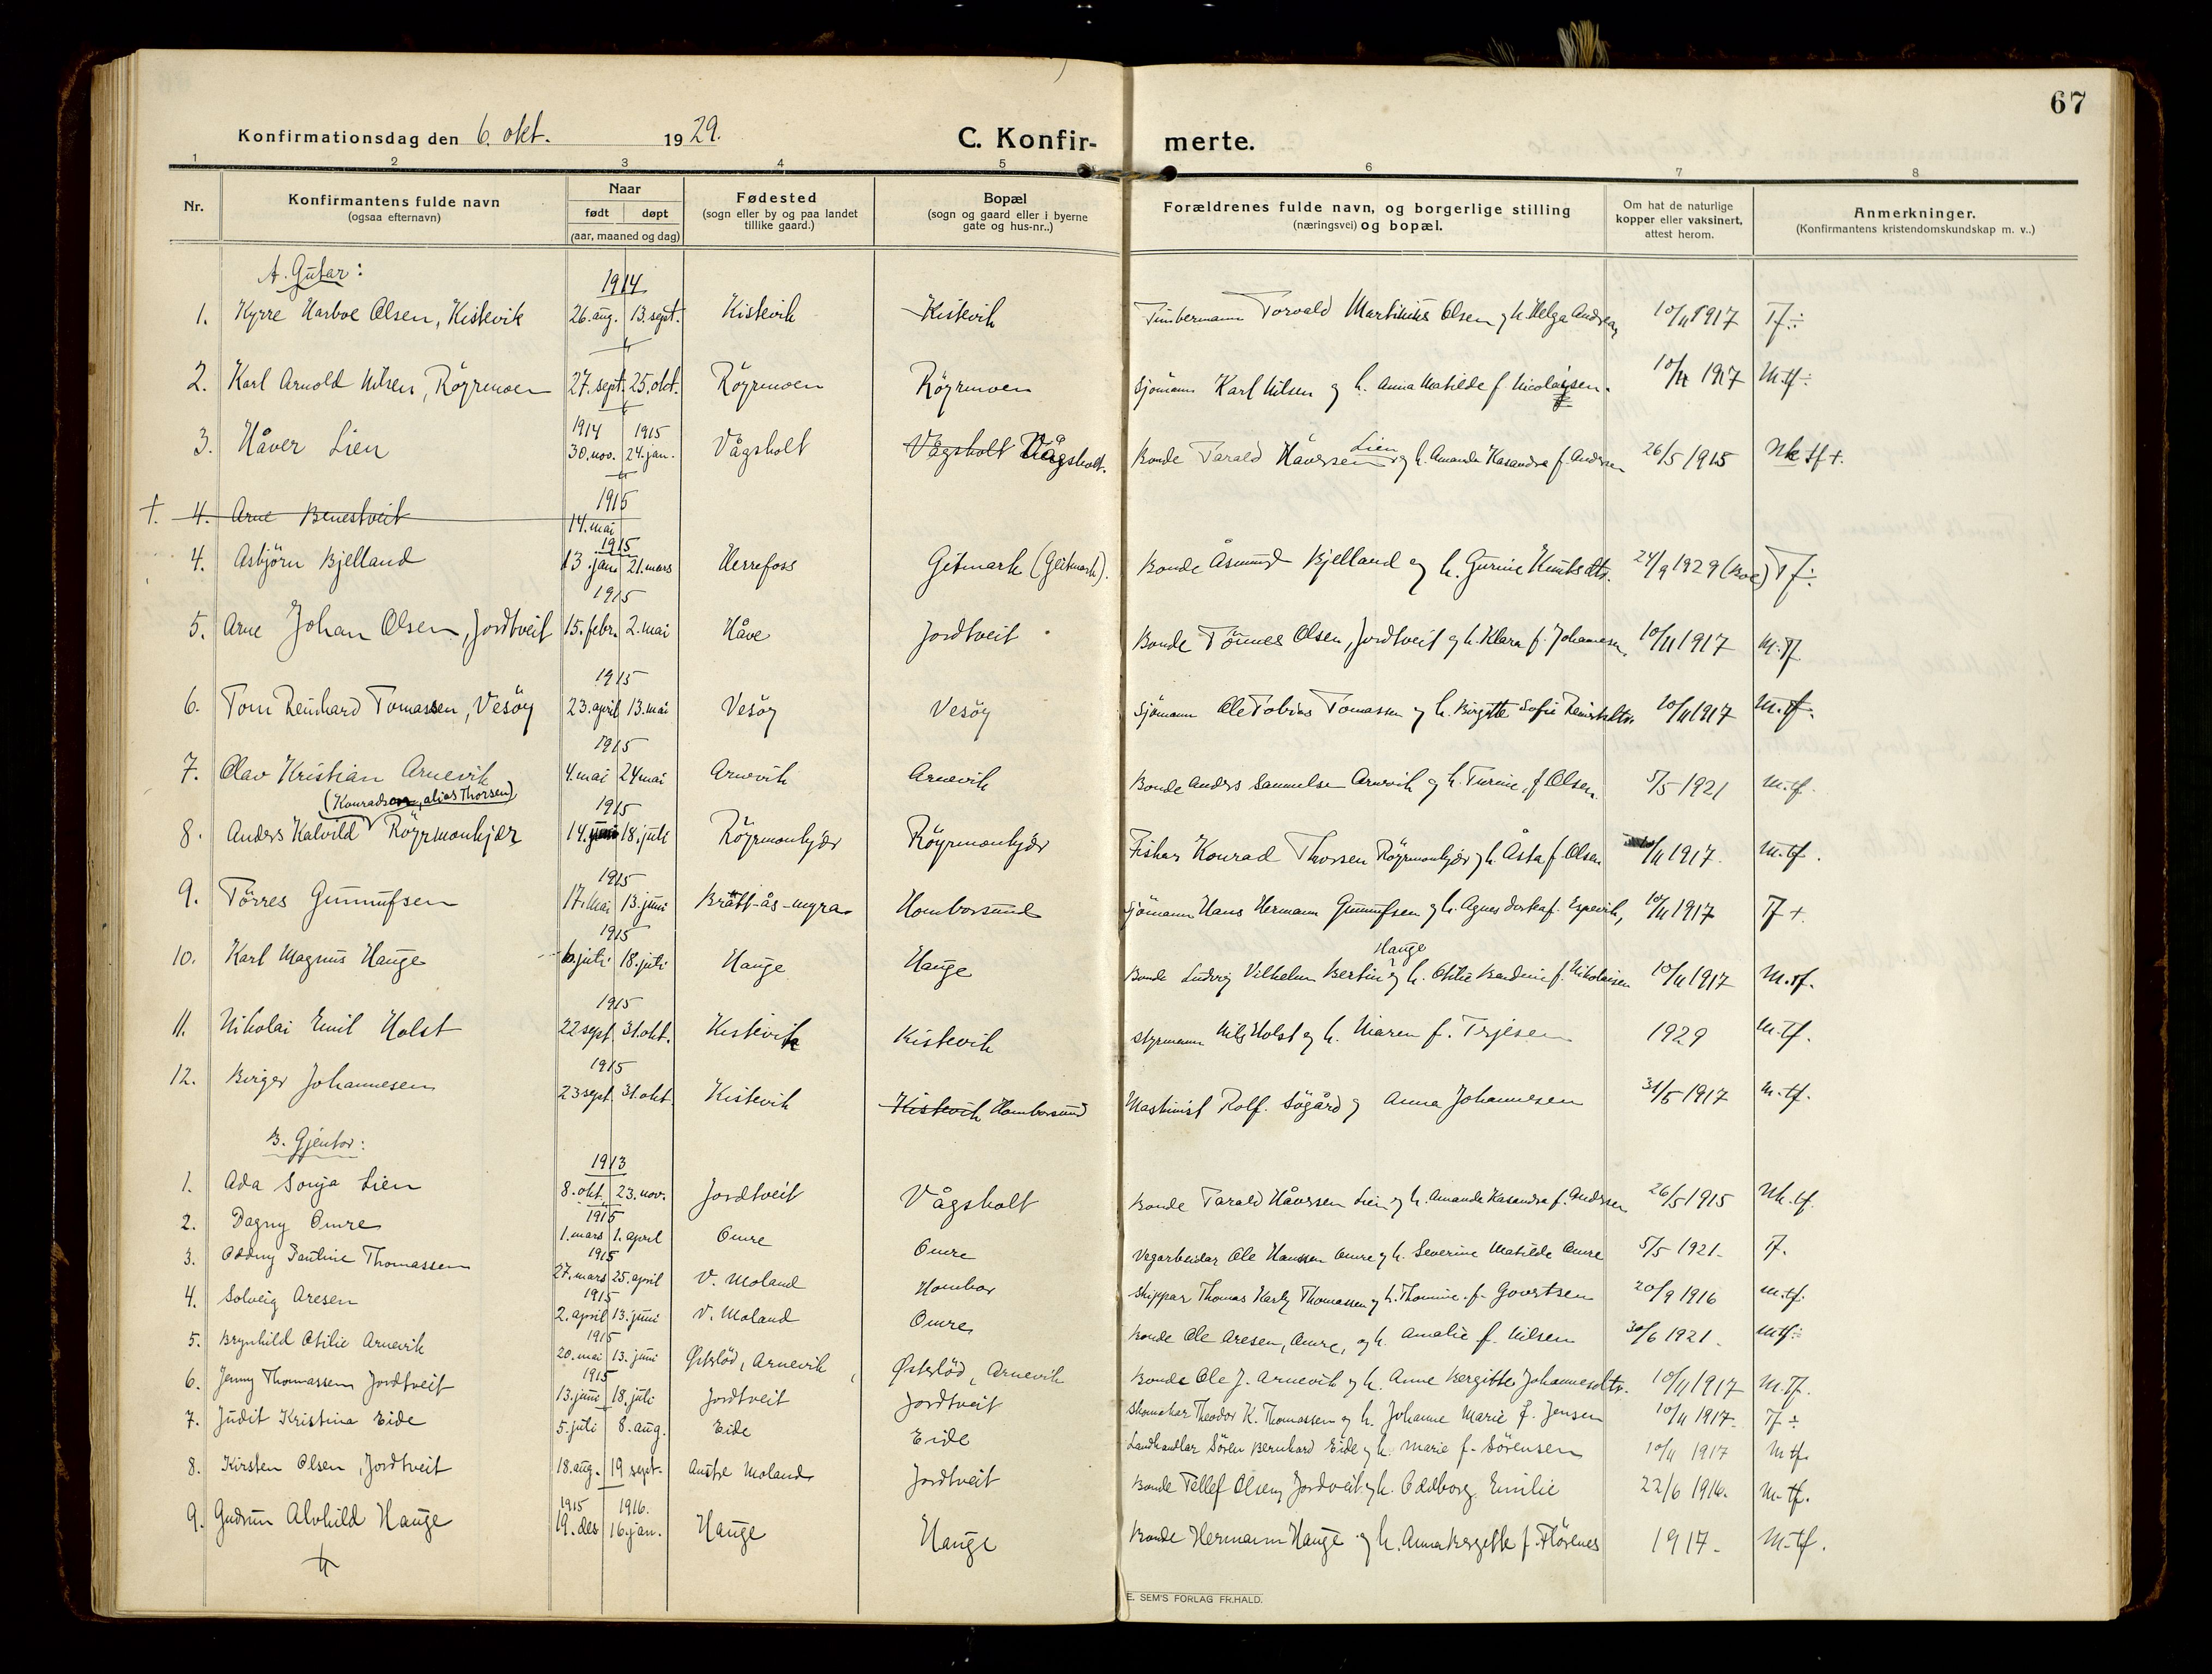 67
Konfirmationsdag den 6. okt. 1929.
C. Konfir- merte.
1 2 3 4 5 6 7 8
Nr.
Konfirmantens fulde navn
(ogsaa efternavn)
Naar
født døpt
(aar, maaned og dag)
Fødested
(sogn eller by og paa landet
tillike gaard.)
Bopæl
(sogn og gaard eller i byerne
gate og hus-nr..)
Forældrenes fulde navn, og borgerlige stilling
(næringsvei) og bopæl.
Om hat de naturlige
kopper eller vaksinert,
attest herom.
Anmerkninger.
(Konfirmantens kristendomskundskap m. v..)
A. Gutar:
1914
1. Kyrre Harboe Olsen, Kistevik 26. aug. 13. sept. Kistevik Kistevik Timbermann Torvald Martinius Olsen og h. Helga Andrea 10/11 1917 Tf ÷
2. Karl Arnold Nilsen, Röyrmoen 27. sept. 25. okt. Röyrmoen Röyrmoen Sjömann Karl Nilsen og h. Anna Matilde f. Nicolaisen. 10/11 1917 M. tf ÷
1914 1915
3. Håver Lien 30. nov. 24. jan. Vågsholt Vågsholt Vågsholt. Bonde Tarald Håversen Lien og h. Amanda Kasandra f. Andersen 26/5 1915 Nk tf +.
1915
†. 4. Arne Benestveit 14. mai
1915
4. Asbjörn Bjelland 13. jan. 21. mars Herrefoss Gitmark (Geitmark). Bonde Åsmund Bjelland og h. Gurine Knutsdtr. 24/9 1929 (Boe) Tf ÷
1915
5. Arne Johan Olsen, Jordtveit 15. febr. 2. mai Håve Jordtveit Bonde Tönnes Olsen, Jordtveit og h. Klara f. Johannesen, 10/11 1917 M. Tf
1915
6. Tom Reinhard Tomassen, Vesöy 23. april 13. mai Vesöy Vesöy Sjömann Ole Tobias Tomassen og h. Birgitte Sofie 10/11 1917 M. tf.
1915
7. Olav Kristian Arnevik 4. mai 24 mai Arnevik Arnevik Bonde Anders Samuelsen Arnevik og h. Turine, f. Olsen. 5/5 1921 M. tf.
(Konradsen, alias Thorsen)
1915
8. Anders Halvild Röyrmonkjær 14. juni 18. juli Röyrmonkjær Röyrmonkjær Fiskar Konrad Thorsen Röyrmonkjær og h. Åsta f. Olsen /11 1917. M. tf.
1915
9. Törres Gunnufsen 17. mai 13. juni Brått-ås-myra Homborsund Sjömann Hans Hermann Gunnufsen og h. Agnes Dorthea f. Espevik, 10/11 1917 Tf +.
1915
10. Karl Magnus Hauge 6. juli 18. juli Hauge Hauge Bonde Ludvig Vilhelm Bertin Hauge og h. Otilie Bendine f. Nikolaisen 10/11 1917 M. tf.
1915
11. Nikolai Emil Holst 22 sept. 31. okt. Kistevik Kistevik Styrmann Nils Holst og h. Maren f. Terjesen 1929 M. tf.
1915
12. Birger Johannesen 23 sept. 31. okt. Kistevik Kistevik Homborsund Maskinist Rolf. Sögård og Anna Johannesen 31/5 1917 M. tf.
B. Gjentor:
1913
1. Ada Sonja Lien 8. okt. 23. nov. Jordtveit Vågsholt Bonde Tarald Håversen Lien og h. Amanda Kasandra f. Andersen 26/5 1915 Nk. tf.
1915
2. Dagny Omre 1. mars 1. april Omre Omre Vegarbeidar Ole Hanssen Omre og h. Severine Matilde Omre 5/5 1921. Tf.
1915
3. Oddny Pauline Thomassen 27. mars 25. april V. Moland Hombor Skippar Thomas Karly Thomassen og h. Thomine. f. Govertsen 20/9 1916 M. tf.
1915
4. Solveig Aresen 2. april 13. juni V. Moland Omre Bonde Ole Aresen, Omre, og h. Amalie f. Nilsen 30/6 1921. M tf ÷
1915
5. Brynhild Otilie Arnevik 20. mai 13. juni Østelöd, Arnevik Østelöd, Arnevik Bonde Ole J. Arnevik og h. Anne Bergitte Johannesdtr. 10/11 1917 M. Tf.
1915
6. Jenny Thomassen Jordtveit 13. juni 18. juli Jordtveit Jordtveit Skomakar Theodor K. Thomassen og h. Johanne Marie f. Jensen 10/11 1917. Tf ÷
7. Judit Kristina Eide 5. juli 8. aug. Eide Eide Landhandlar Sören Bernhard Eide og h. Marie f. Sörensen 10/11 1917 M tf.
8. Kirsten Olsen, Jordtveit 18. aug. 19 sept. Austre Moland Jordtveit Bonde Tellef Olsen, Jordveit og h. Oddborg Emilie 22/6 1916. M. tf.
1915 1916.
9. Gudrun Alvhild Hauge 19. des 16. jan. Hauge Hauge Bonde Hermann Hauge og h. Anna Bergitte f. Flörenes 1917. M. tf.
E. SEM'S FORLAG FR.HALD.